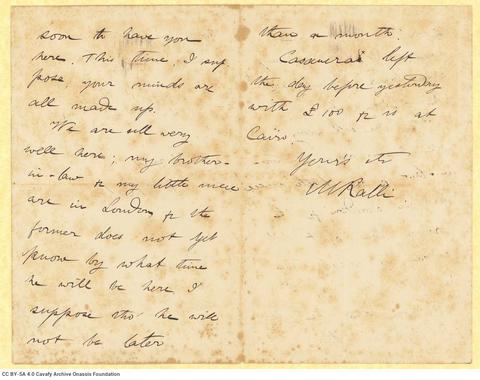 soon to have you
here. This time, I sup
pose, your minds are
all made up.
We are all very
well here; my brother-
in-law & my little niece
are in London & the
former does not yet
know by what time
he will be here I
suppose tho' he will
not be later
than a month.
left
the day before yesterday
with £100 & is at
Cairo.
Yours etc
MRalli
CC BY-SA 4.0 Cavafy Archive Onassis Foundation